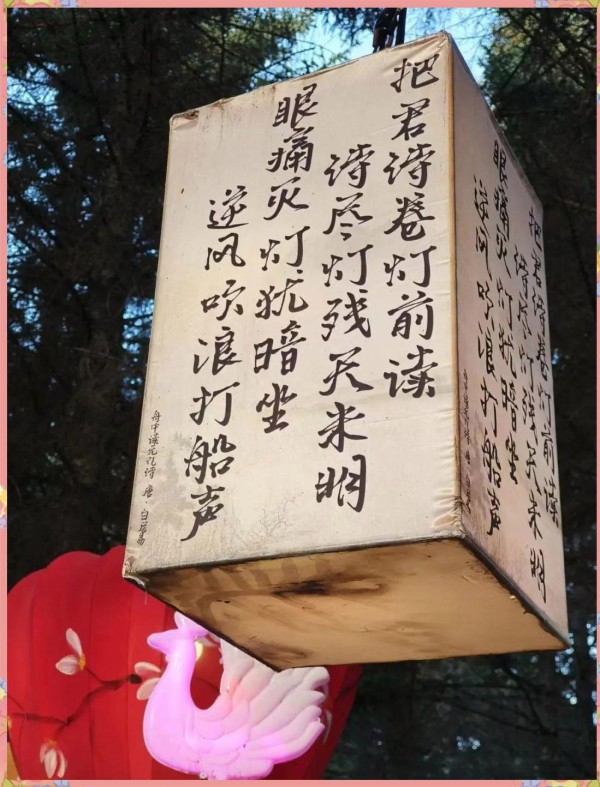 把君诗卷灯前读
诗尽灯残天未明
眼痛灭灯犹暗坐
逆风吹浪打船声
舟中读元九诗 唐 白居易
把君诗卷灯前读
诗尽灯残天未明
眼痛灭灯犹暗坐
逆风吹浪打船声